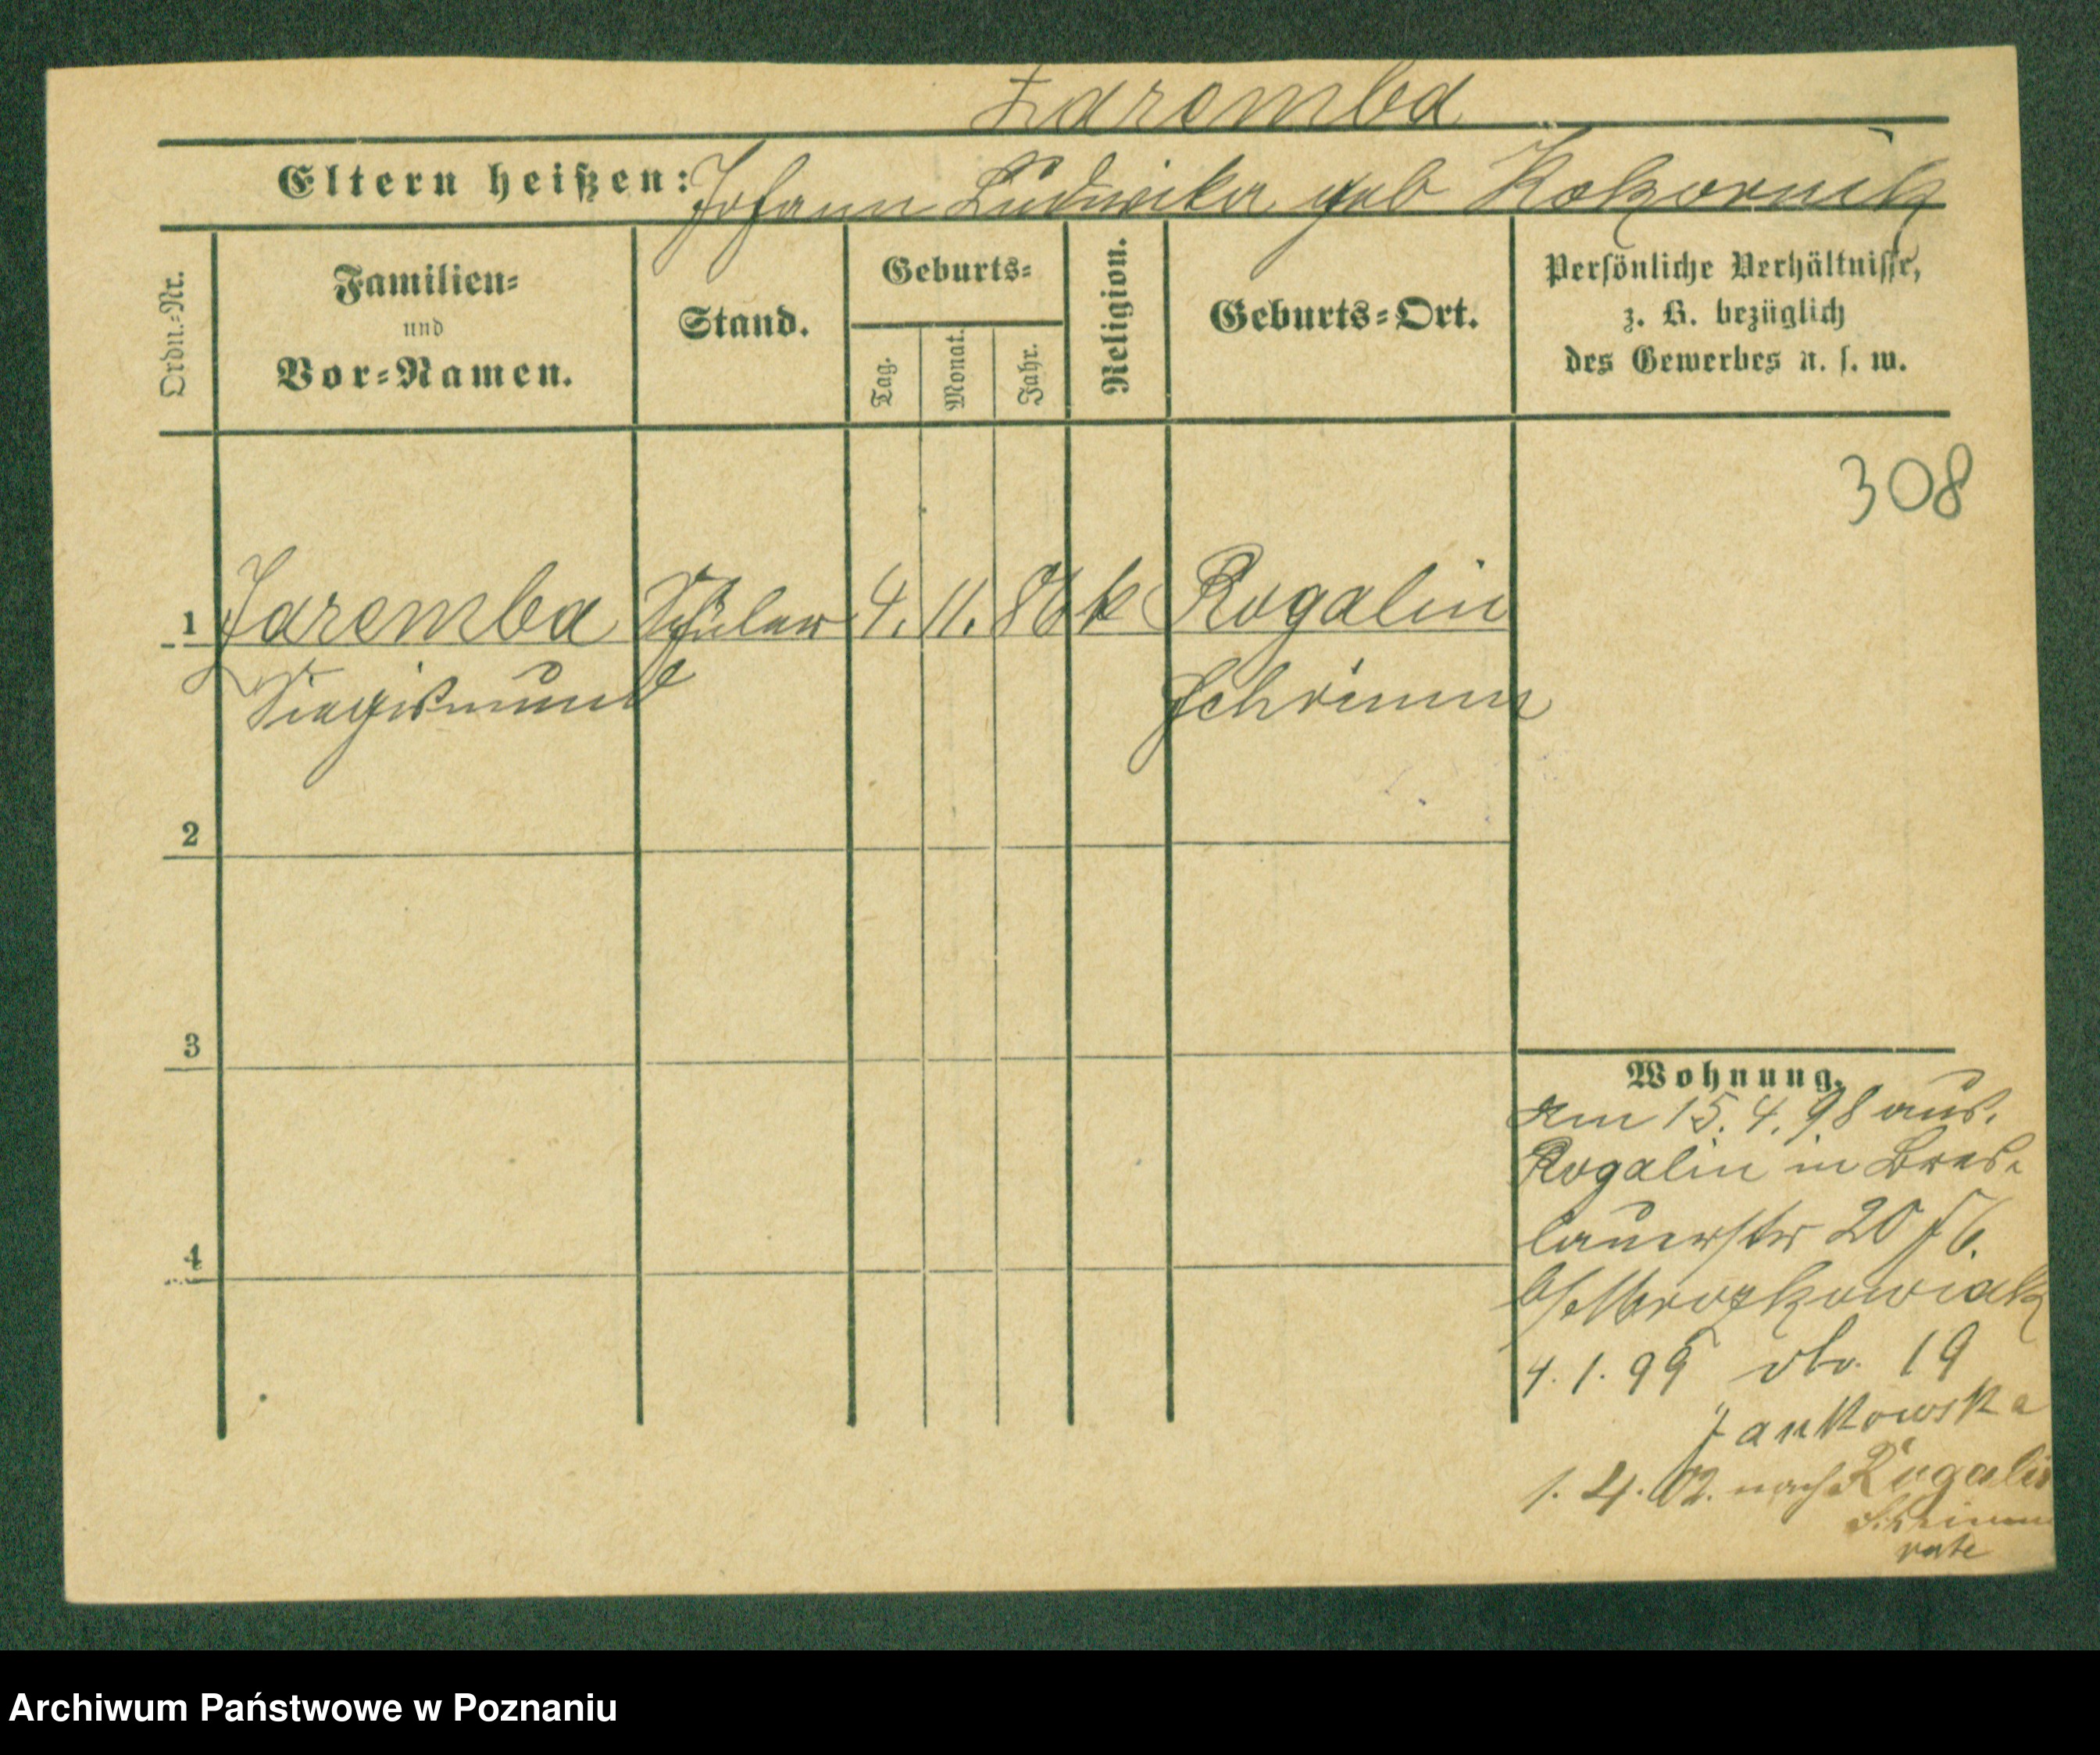 Zaremba
Eltern heißen: Johann Ludwika geb
Ordn.-Nr.
Familien-
und
Vor-Namen.
Stand.
Geburts-
Tag.
Monat.
Jahr.
Religion.
Geburts-Ort.
Persönliche Verhältnisse,
z. B. bezüglich
des Gewerbes u. s. w.
308
1 Zaremba Schüler 4. 11. 86 k Rogalin
Siegismund Schrimm
2
3
4
Wohnung.
Am 15. 4. 98 aus.
Rogalin in Bres-
lauerstr 20
4. 1. 99 19
Jankowska
1. 4. 02. nach Rogalin
Schrimm
Archiwum Państwowe w Poznaniu